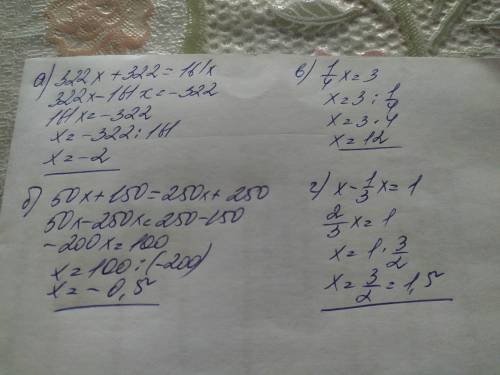 а) 322x + 322 = 161x
322x - 161x = -322
161x = -322
x = -322 : 161
x = -2
б) 50x + 150 = 250x + 250
50x - 250x = 250 - 150
-200x = 100
x = 100 : (-200)
x = -0,5
в) 1/4 x = 3
x = 3 : 1/4
x = 3 · 4
x = 12
г) x - 1/3 x = 1
2/3 x = 1
x = 1 · 3/2
x = 3/2 = 1,5